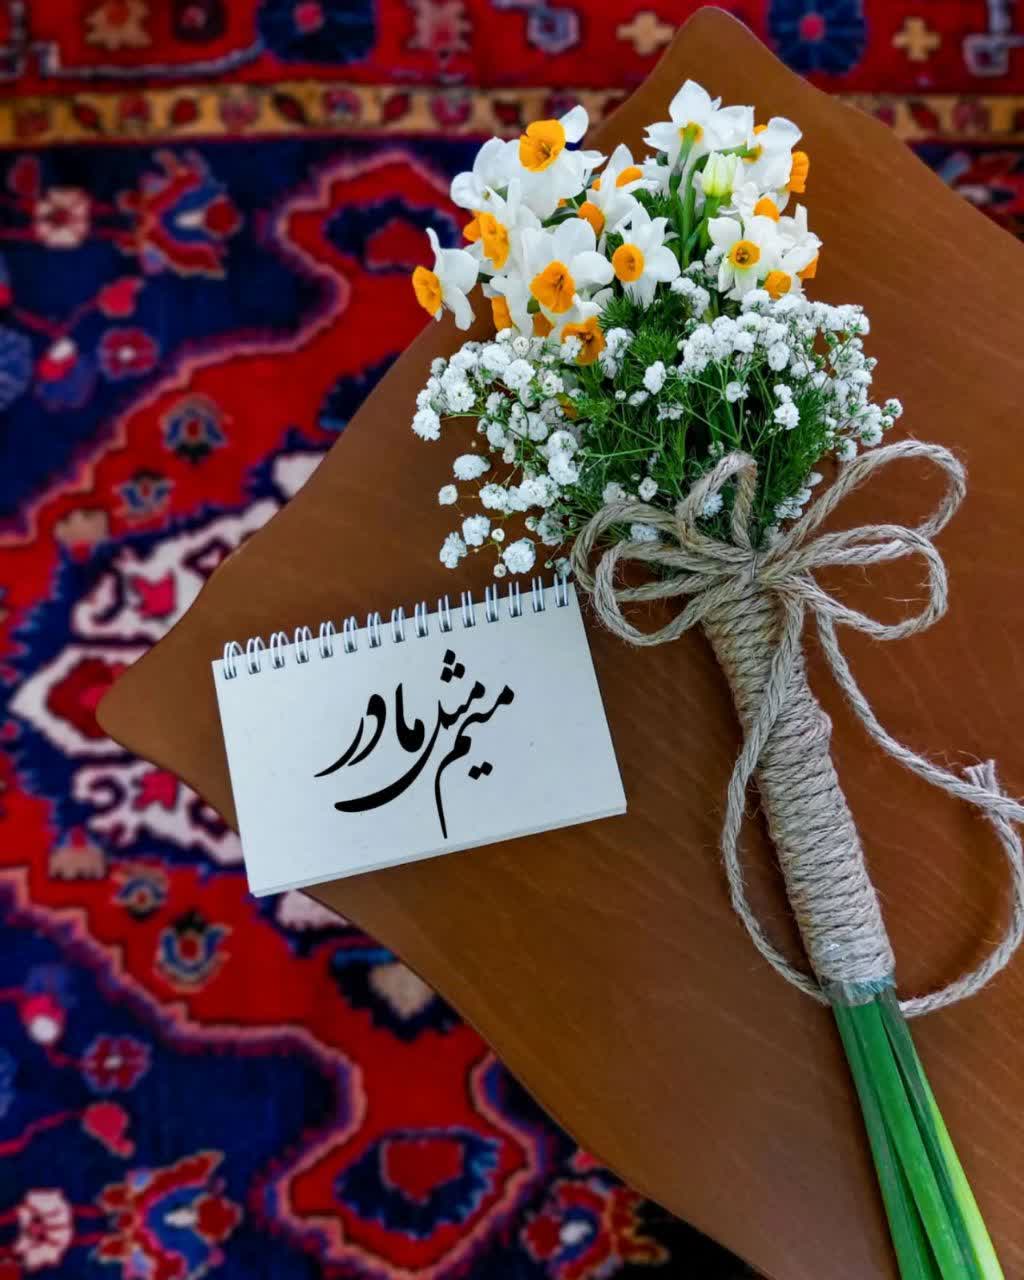 میم مثل مادر